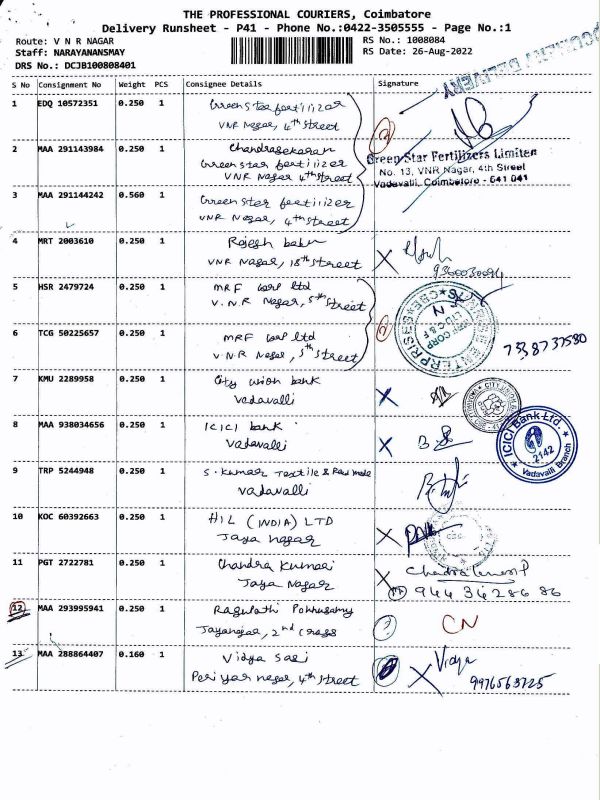 THE PROFESSIONAL COURIERS, Coimbatore
Delivery Runsheet - P41 - Phone No.:0422-3505555 - Page No.:1
Route: V N R NAGAR
RS No.: 1008084
Staff: NARAYANANSMAY
RS Date: 26-Aug-2022
DRS No.: DCJB100808401
DELIVERY
S No Consignment No Weight PCS Consignee Details Signature
1 EDQ 10572351 0.250 1 Green Star fertilizer
VNR Nagar, 4th Street
2 MAA 291143984 0.250 1 Chandrasekaran
Green Star fertilizer
VNR Nagar 4th Street
Green Star Fertilizers Limited
No. 13, VNR Nagar, 4th Street
Vadavalli, Coimbatore - 641 041
3 MAA 291144242 0.560 1 Green Star fertilizer
VNR Nagar, 4th Street
4 MRT 2003610 0.250 1 Rajesh babu
VNR Nagar, 18th Street
5 HSR 2479724 0.250 1 MRF Corp ltd
V.N.R Nagar, 5th Street
ENTERPRISES
6 TCG 50225657 0.250 1 MRF Corp ltd
V.N.R Nagar, 5th Street
7538737580
7 KMU 2289958 0.250 1 City union bank
Vadavalli
8 MAA 938034656 0.250 1 ICICI bank
Vadavalli
ICICI Bank Ltd.
2142
Vadavalli Branch
9 TRP 5244948 0.250 1 S. Kumar Textile &
Vadavalli
10 KOC 60392663 0.250 1 HIL (INDIA) LTD
Jaya nagar
11 PGT 2722781 0.250 1 Chandra Kumari
Jaya Nagar
9443428686
12 MAA 293995941 0.250 1 Ragupathi Ponnusamy
Jayanagar, 2nd Cross
CN
13 MAA 288864407 0.160 1 Vidya Sasi
Periyar nagar, 4th Street
Vidya